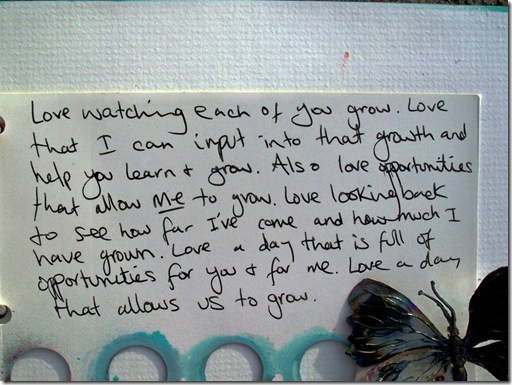 Love watching each of you grow. Love
that I can input into that growth and
help you learn & grow. Also love opportunities
that allow me to grow. Love looking back
to see how far I've come and how much I
have grown. Love a day that is full of
opportunities for you & for me. Love a day
that allows us to grow.